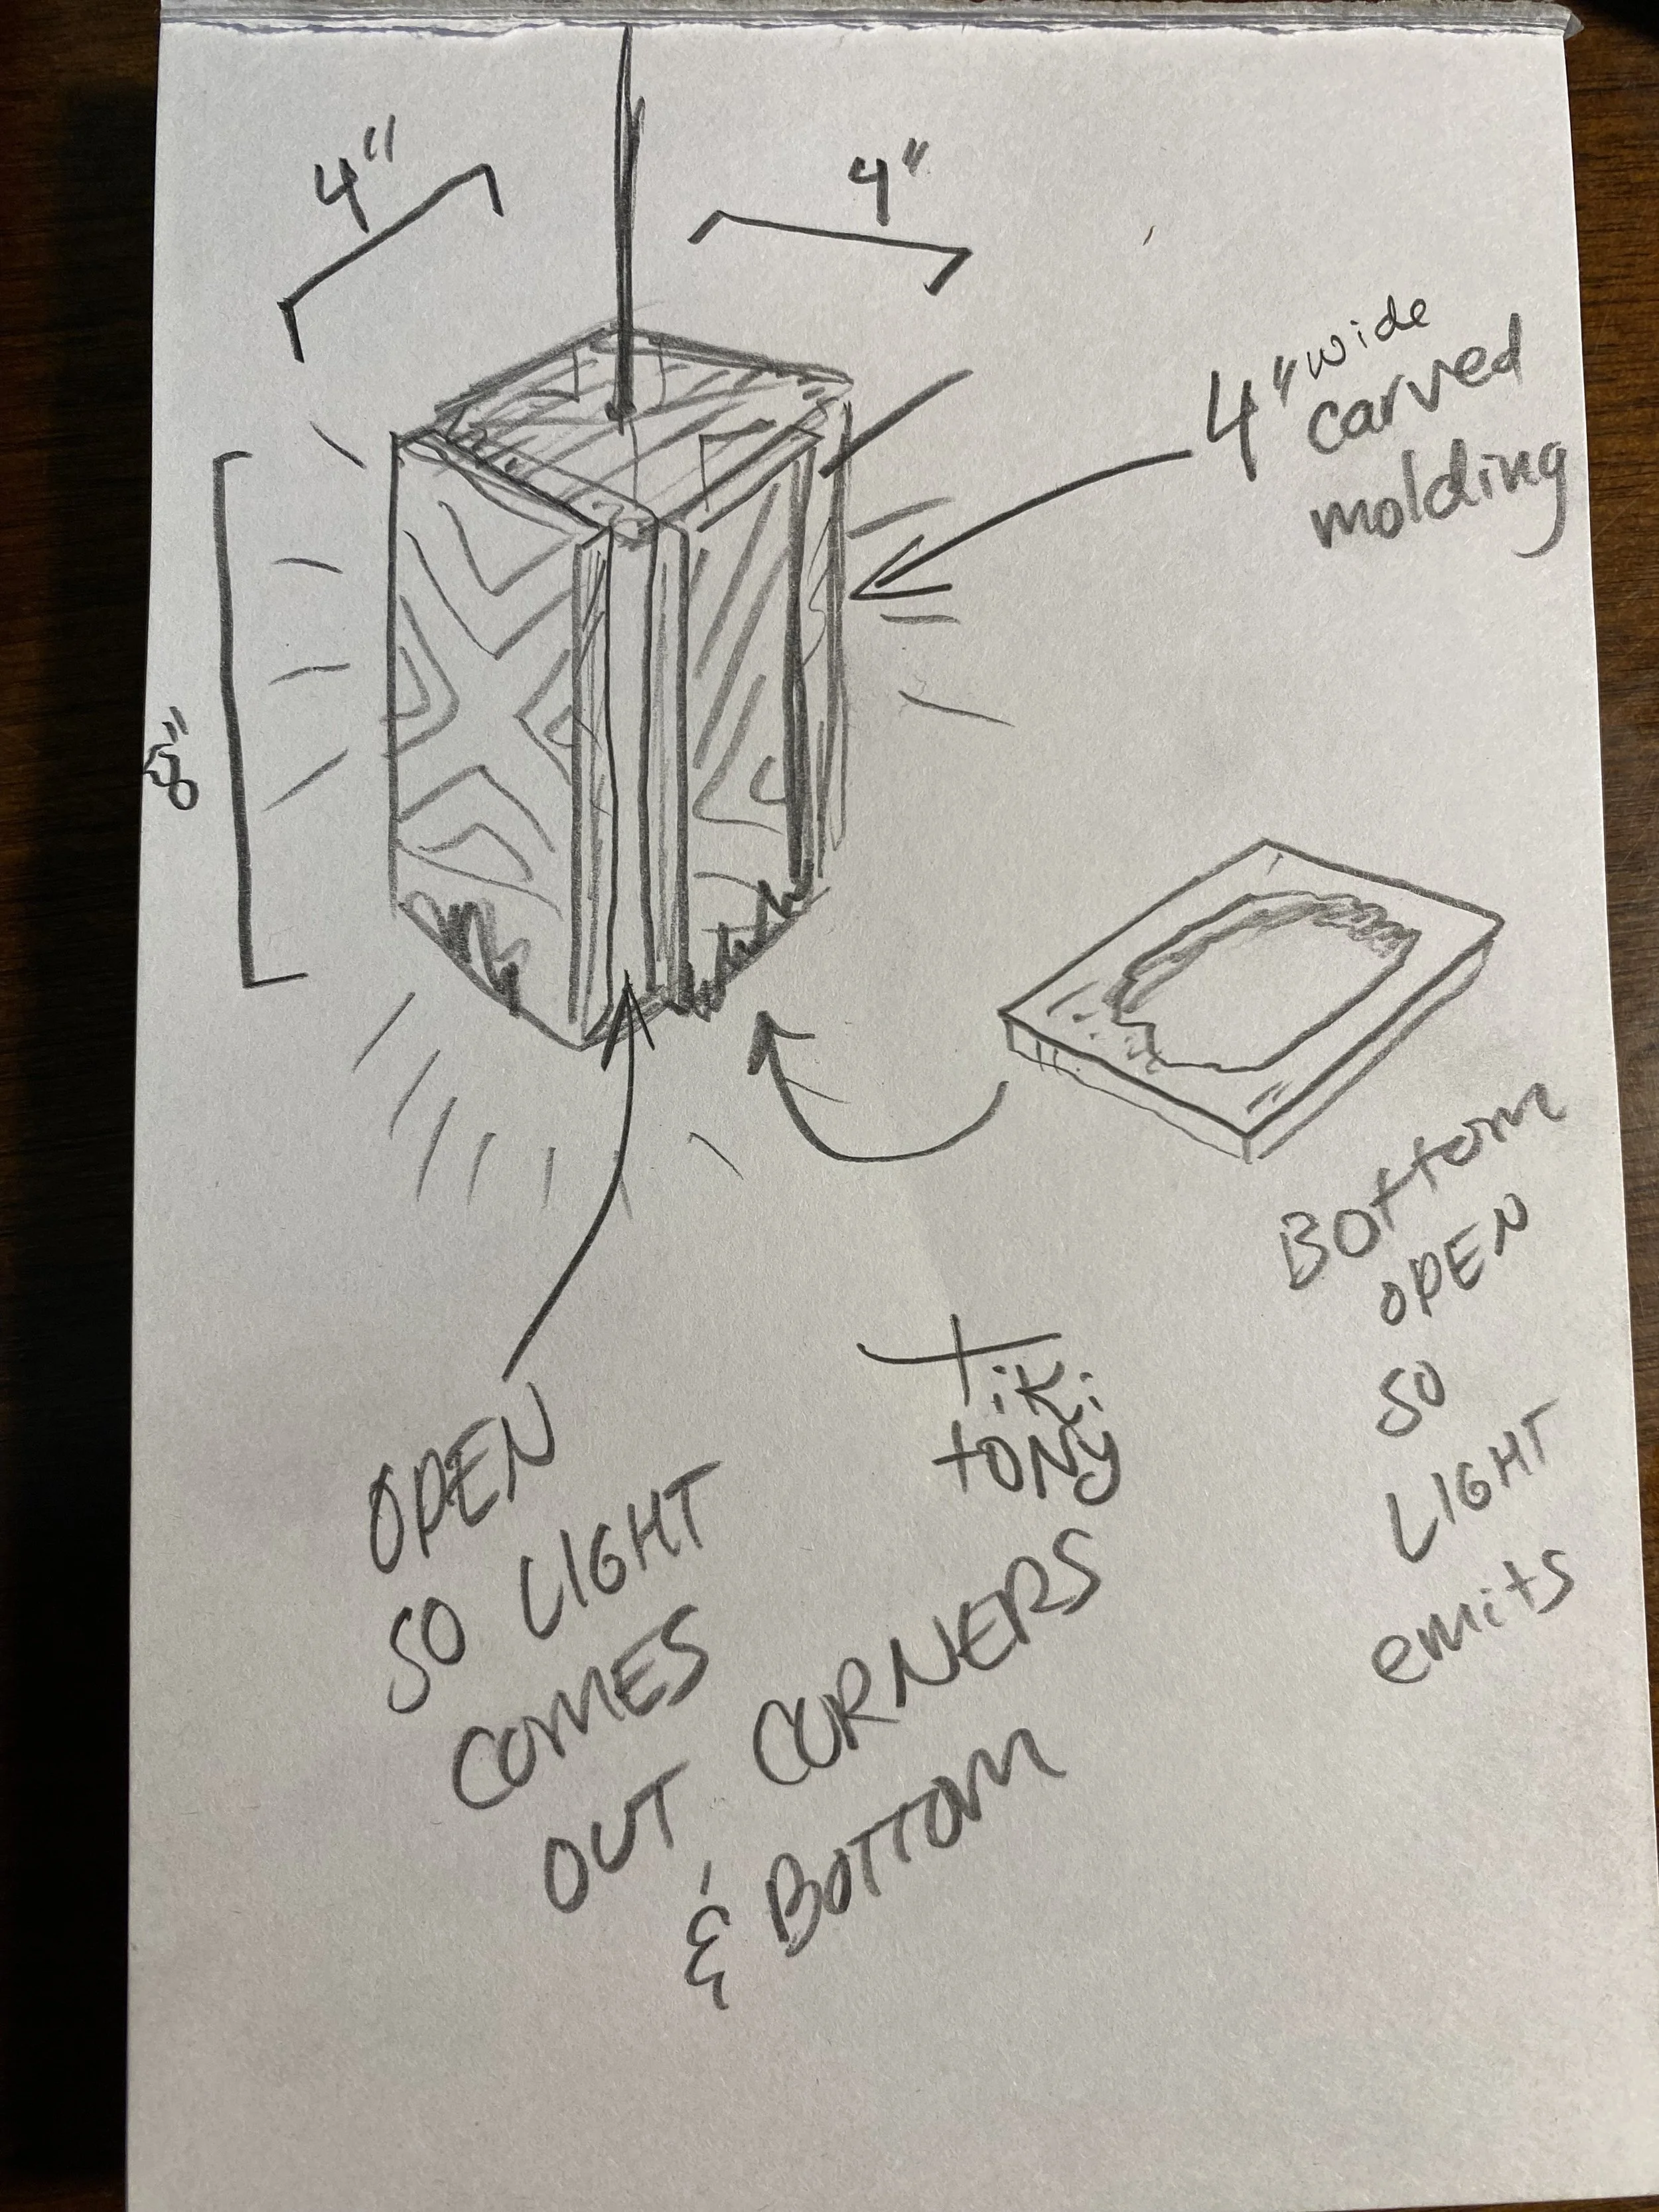 4"
4"
4" wide
carved
molding
8"
Bottom
OPEN
SO
LIGHT
emits
tiki
tony
OPEN
SO LIGHT
COMES
OUT CORNERS
& BOTTOM